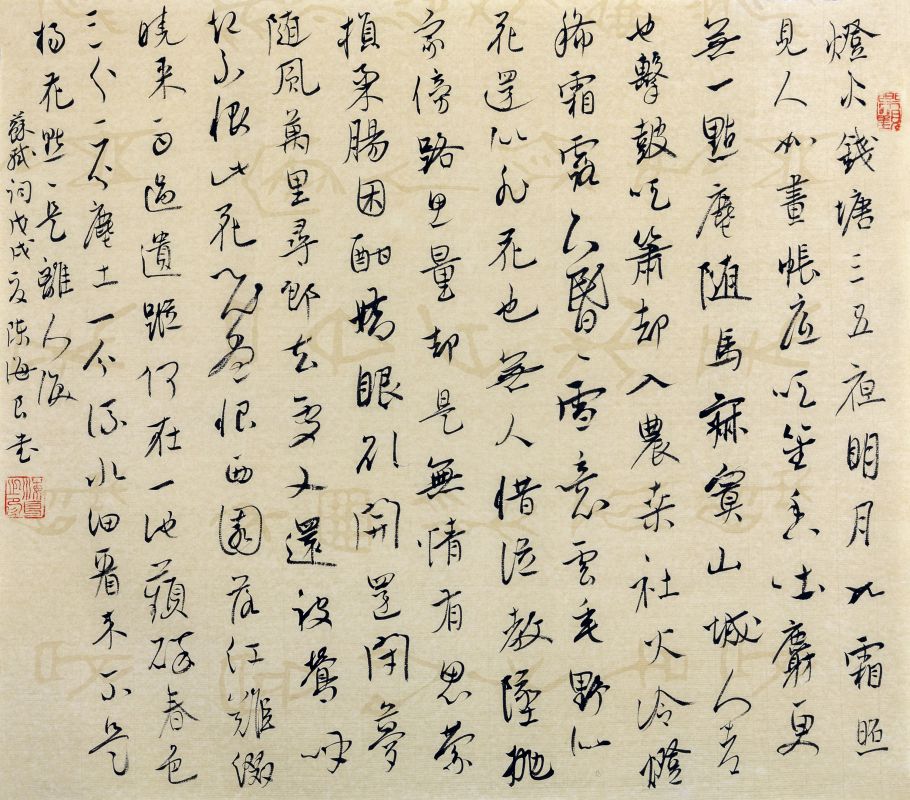 燈火錢塘三五夜明月如霜照
見人如畫帳底吹笙香吐麝更
無一點塵隨馬寂寞山城人老
也擊鼓吹簫却入農桑社火冷燈
稀霜露下昏〻雪意雲垂野似
花還似非花也無人惜從教墜抛
家傍路思量却是無情有思縈
損柔腸困酣嬌眼欲開還閉夢
隨風萬里尋郎去處又還被鶯呼
起不恨此花飛盡恨西園落紅難綴
曉來雨過遺蹤何在一池蘋碎春色
三分二分塵土一分流水細看來不是
楊花點〻是離人淚
蘇軾詞戊戌夏陳海良書